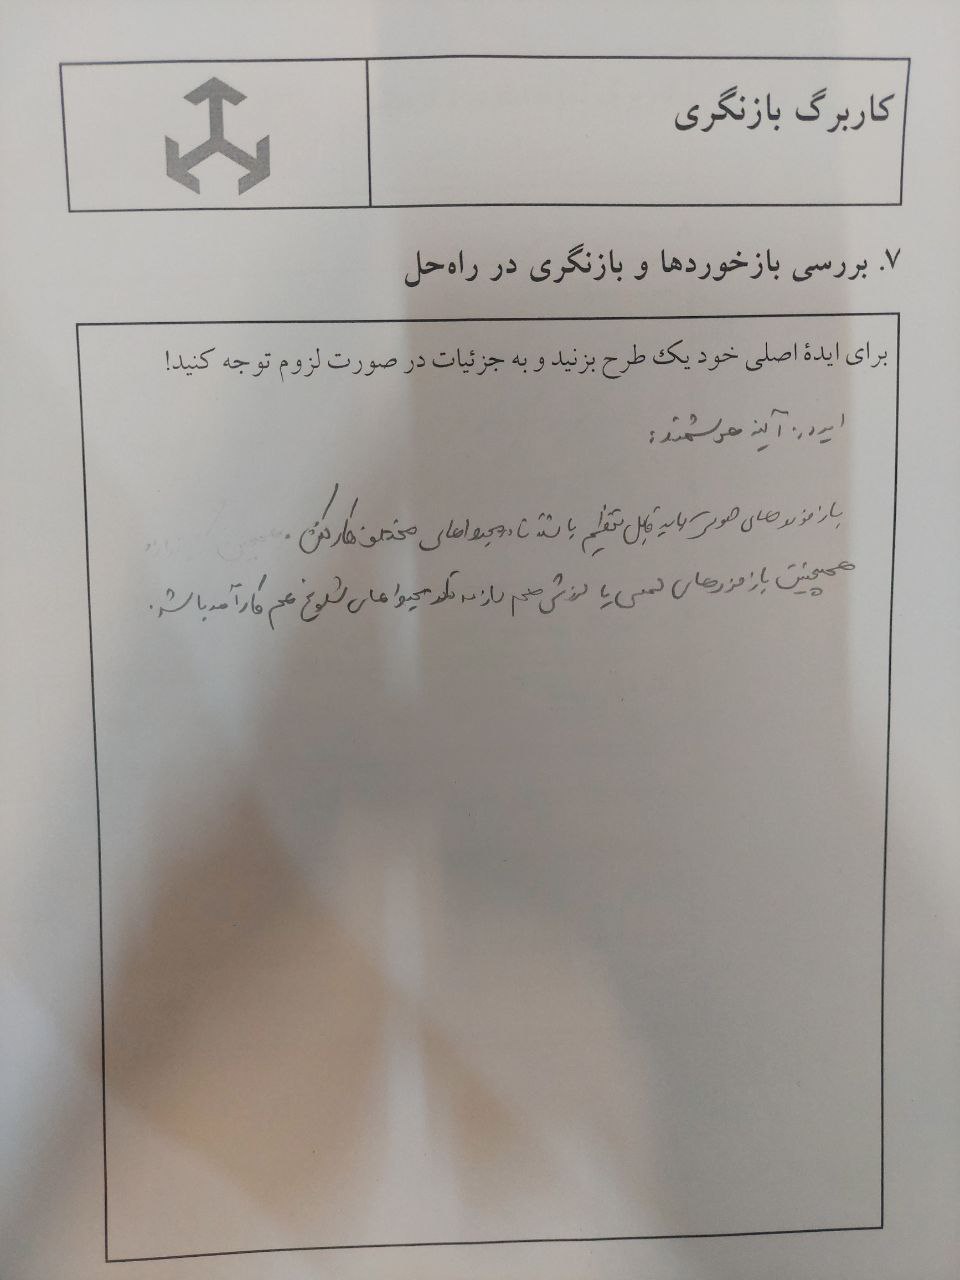 کاربرگ بازنگری
۷. بررسی بازخوردها و بازنگری در راه‌حل
برای ایدهٔ اصلی خود یک طرح بزنید و به جزئیات در صورت لزوم توجه کنید!
ایده: آینه هوشمند:
بازخوردهای صوتی باید قابل تنظیم باشند تا در محیط‌های مختلف کار کنن.
همچنین بازخوردهای لمسی یا لرزشی هم محیط‌های شلوغ هم کارآمد باشد.